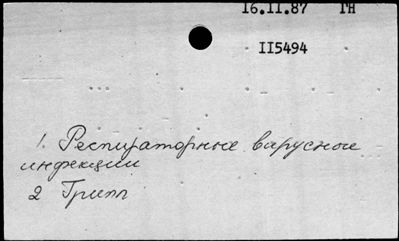 16.11.87 ГН
II5494
1. Респираторные вирусные
инфекции
2 Грипп